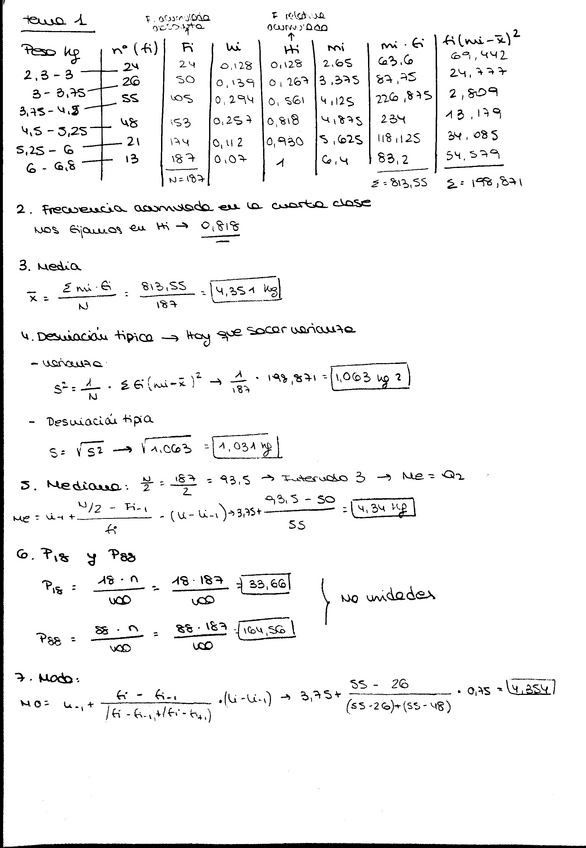 tema 1
F. acumulada
absoluta
F relativa
acumulada
Peso kg nº (fi) Fi hi Hi mi mi · fi fi(mi-x̄)²
2,3 - 3 24 24 0,128 0,128 2,65 63,6 69,442
3 - 3,75 26 50 0,139 0,267 3,375 87,75 24,777
3,75 - 4,5 55 105 0,294 0,561 4,125 226,875 2,809
4,5 - 5,25 48 153 0,257 0,818 4,875 234 13,179
5,25 - 6 21 174 0,112 0,930 5,625 118,125 34,085
6 - 6,8 13 187 0,07 1 6,4 83,2 54,579
N=187 Σ=813,55 Σ=198,871
2. Frecuencia acumulada en la cuarta clase
Nos fijamos en Hi → 0,818
3. Media
x̄ = Σ mi·fi / N = 813,55 / 187 = 4,351 kg
4. Desviación típica → Hay que sacar varianza
- varianza
S² = 1/N · Σ fi(mi-x̄)² → 1/187 · 198,871 = 1,063 kg 2
- Desviación tipia
S = √S² → √1,063 = 1,031 kg
5. Mediana: N/2 = 187/2 = 93,5 → Intervalo 3 → Me = Q2
Me = Li-1 + N/2 - Fi-1 / fi · (Li-Li-1) → 3,75 + 93,5 - 50 / 55 = 4,34 kg
6. P18 y P88
P18 = 18·n / 100 = 18·187 / 100 = 33,66
P88 = 88·n / 100 = 88·187 / 100 = 164,56
No unidades
7. Moda:
MO = Li-1 + fi - fi-1 / (fi-fi-1)+(fi-fi+1) · (Li-Li-1) → 3,75 + 55 - 26 / (55-26)+(55-48) · 0,75 = 4,354